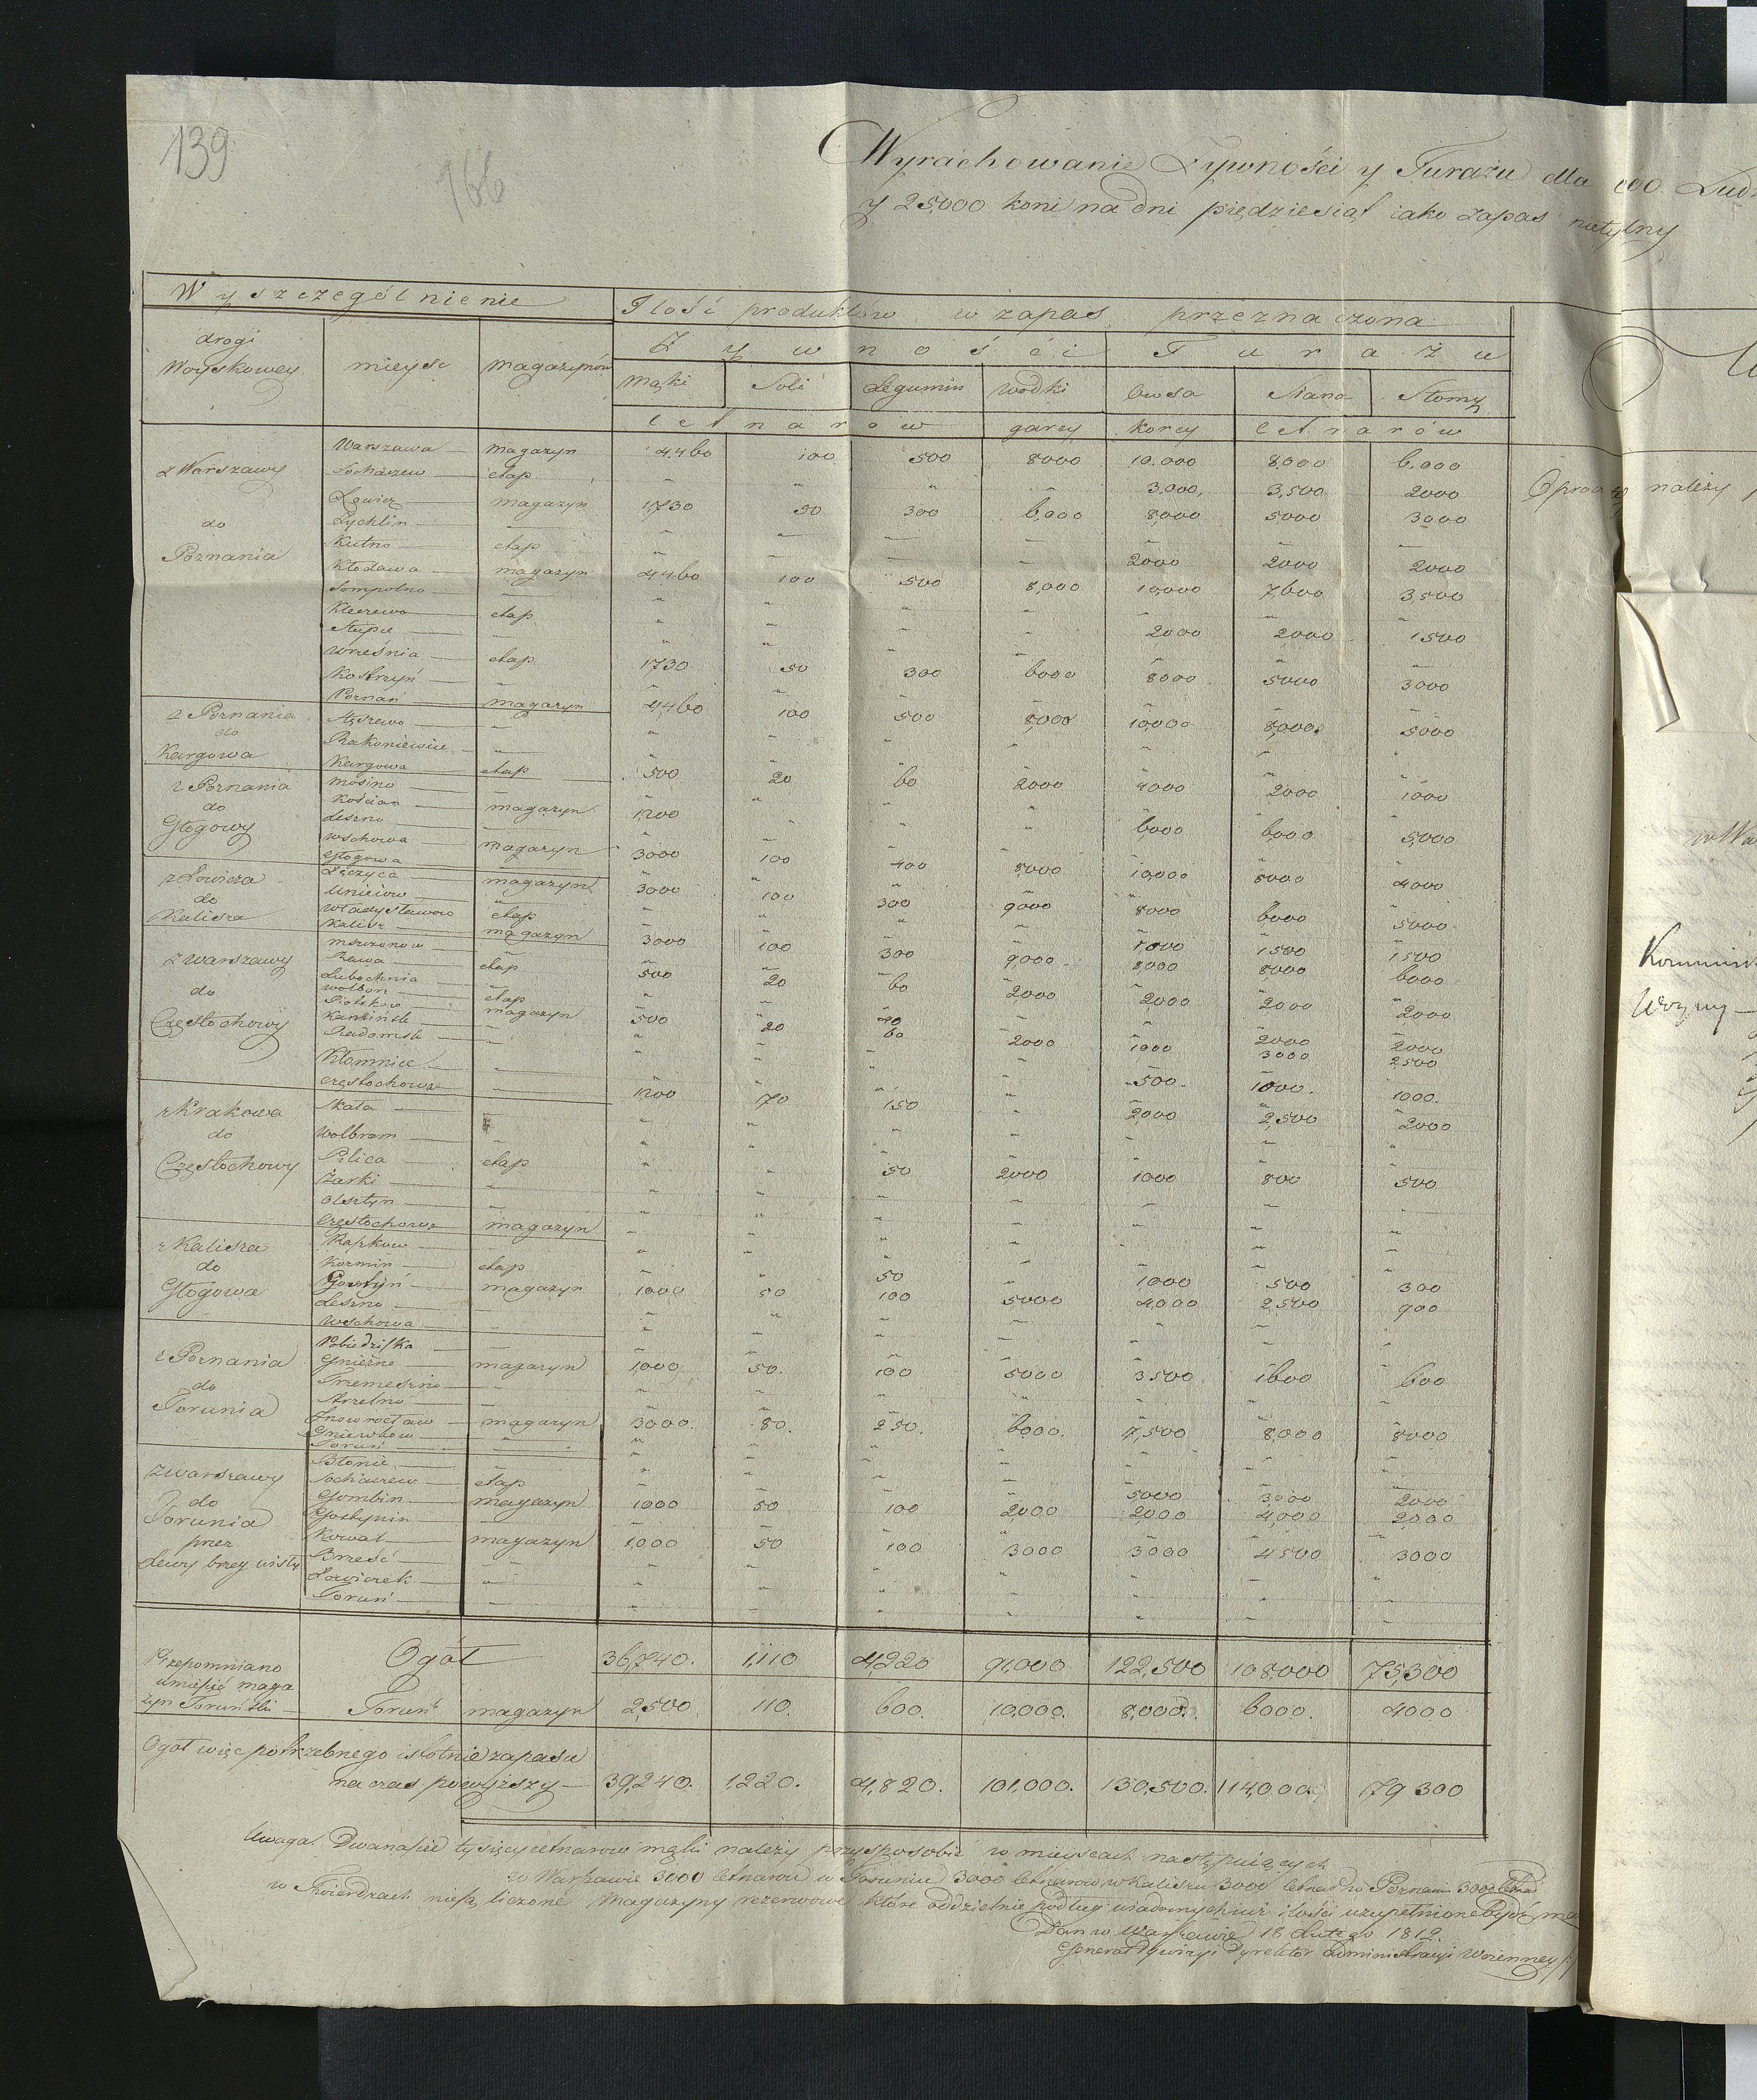 139
166
Wyrachowanie Żywności y Furażu dla 000 Ludz
y 25,000 koni na dni piędziesiąt iako zapas nietylny
Wyszczególnienie
Ilość produktów w zapas przeznaczona
drogi Woyskowey miejsc magazynów
Żywności Furażu
Mąki Soli Legumin Wodki Owsa Siana Słomy
Cetnarow garcy korcy Cetnarów
z Warszawy do Poznania
Warszawa magazyn 4460 100 500 8000 10.000 8,000 6.000
Sochaczew etap " " " " 3.000, 3,500 2000
Łowicz magazyn 1730 50 300 6,000 8,000 5000 3000
Zychlin
Kutno etap 2000 2000 2000
Kłodawa magazyn 4460 100 500 8,000 10,000 7,600 3,500
Sompolno
Kleczewo etap 2000 2000 1500
Słupce
Września etap 1730 50 300 6000 8000 5000 3000
Kostrzyń
Poznań magazyn 4460 100 500 8,000 10,000 8,000. 5000
z Poznania do Kargowa
Stęszewo
Rakoniewice
Kargowa etap 500 20 60 2000 4000 2000 1000
z Poznania do Głogowy
Mosino
Kościan magazyn 1,200 6,000 6,000 5,000
Leszno
Wschowa magazyn 3000 100 400 8,000 10,000 8000 4000
Głogowa
z Łowicza do Kalisza
Łęczyca magazyn 3000 100 300 9000 8000 6000 5000
Uniciow
Władysławow etap 1000 1500 1500
Kalisz magazyn 3000 100 300 9,000 8,000 8000 6000
z Warszawy do Częstochowy
Mszczonow
Rawa etap 500 20 60 2000 2000 2000 2000
Lubochnia
Wolborz etap 500 20 40 2000 2000
Piotrkow magazyn 60 2000 1000 3000 2500
Kamińsk
Radomsk 500 1000. 1000.
Kłomnice
Częstochowa 1200 70 150 2,000 2,500 2000
z Krakowa do Częstochowy
Skała
Wolbram
Pilica etap 50 2000 1000 800 500
Żarki
Olsztyn
Częstochowa magazyn
z Kalisza do Głogowa
Raszkow
Kozmin etap 50 1000 500 300
Gostyń magazyn 1000 50 100 5000 4,000 2,500 900
Leszno
Wschowa
z Poznania do Torunia
Pobiedziska
Gniezno magazyn 1,000 50. 100 5000 3500 1600 600
Trzemeszno
Strzelno
Inowrocław magazyn 3000. 80. 250. 6000. 7,500 8,000 8000
Gniewkow
Toruń
z Warszawy do Torunia przez Lewy brzeg wisły
Błonie
Sochaczew etap 5000 3,000 2000
Gombin magazyn 1000 50 100 2000 2000 4,000 2,000
Gostynin
Kowal magazyn 1,000 50 100 3000 3000 4500 3000
Brześć
Łowiczek
Toruń
Ogół 36,740. 1,110 4,220 91,000 122,500 108,000 75,300
Przepomniano umieścić magazyn Toruński Toruń magazyn 2,500 110. 600. 10,000. 8,000. 6000. 4000
Ogół więc potrzebnego istotnie zapasu
na czas powyższy 39,240. 1,220. 4,820. 101,000. 130,500. 114,000. 79 300
Uwaga. Dwanaście tysięcy cetnarow mąki należy przysposobić w mieyscach następuiących
w Warszawie 3000 Cetnarow w Toruniu 3000 Cetnarow w Kaliszu 3000 Cetnar: w Poznaniu 3000 Cetnar
w Twierdzach niesą liczone Magazyny rezerwowe które oddzielnie podług wiadomych iuż ilości uzupełnione bydź ma
Dan w Warszawie 18 Lutego 1812.
Generał Dywizyi Dyrektor Administracyi Woienney
Oprocz należy
w Wa
Kommis
Woyny